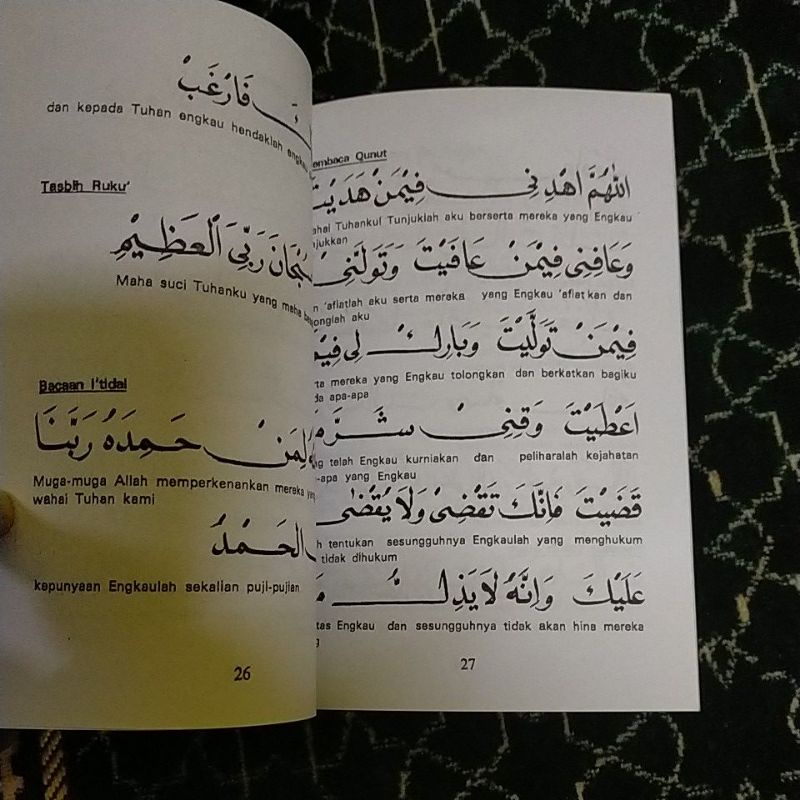 فَارْغَبْ
dan kepada Tuhan engkau hendaklah
Tasbih Ruku'
رَبِّيَ الْعَظِيْمِ
Maha suci Tuhanku yang maha
Bacaan I'tidal
لِمَنْ حَمِدَهُ رَبَّنَا
Muga-muga Allah memperkenankan mereka
wahai Tuhan kami
الْحَمْدُ
kepunyaan Engkaulah sekalian puji-pujian
26
Qunut
اَللّٰهُمَّ اهْدِنِى فِيْمَنْ هَدَيْتَ
Tuhanku! Tunjuklah aku berserta mereka yang Engkau
وَعَافِنِى فِيْمَنْ عَافَيْتَ وَتَوَلَّنِى
'afiatlah aku serta mereka yang Engkau 'afiatkan dan
aku
فِيْمَنْ تَوَلَّيْتَ وَبَارِكْ لِى
mereka yang Engkau tolongkan dan berkatkan bagiku
apa-apa
اَعْطَيْتَ وَقِنِىْ شَرَّ
telah Engkau kurniakan dan peliharalah kejahatan
yang Engkau
قَضَيْتَ فَاِنَّكَ تَقْضِىْ وَلَا يُقْضٰى
tentukan sesungguhnya Engkaulah yang menghukum
tidak dihukum
عَلَيْكَ وَاِنَّهُ لَا يَذِلُّ
Engkau dan sesungguhnya tidak akan hina mereka
27